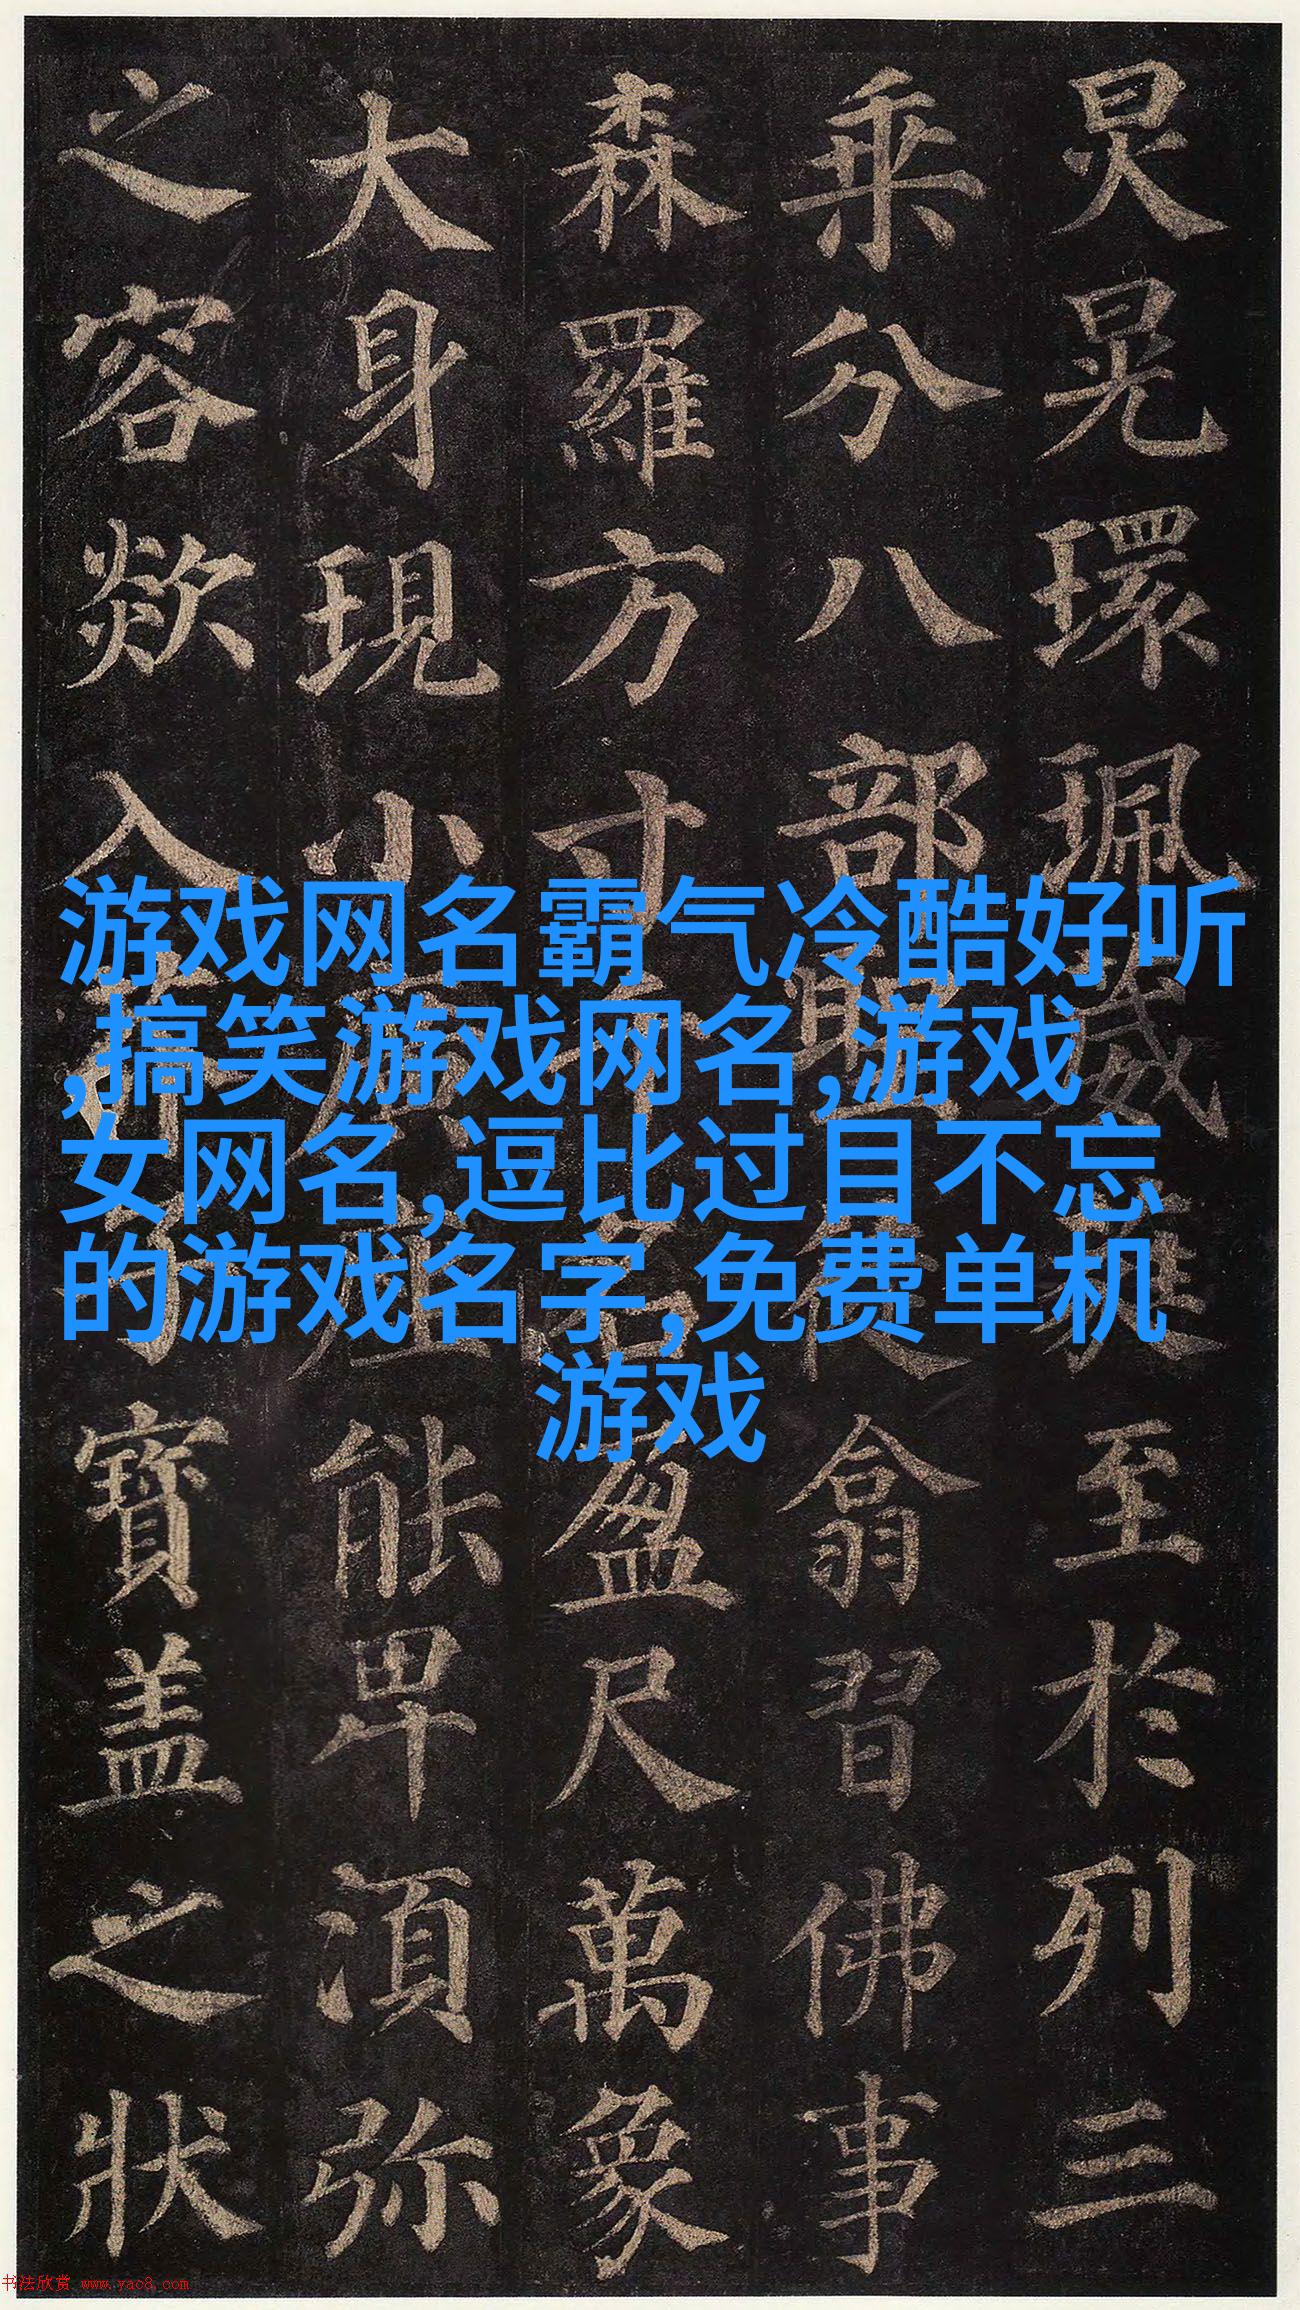 炅晃環珮葳蕤至於列三
乘分八部聖徒翕習佛事
森羅方寸千名盈尺萬象
大身現小廣座能卑須弥
之容歘入芥子寶盖之狀
游戏网名霸气冷酷好听
,搞笑游戏网名,游戏
女网名,逗比过目不忘
的游戏名字,免费单机
游戏
书法欣赏 www.yac8.com